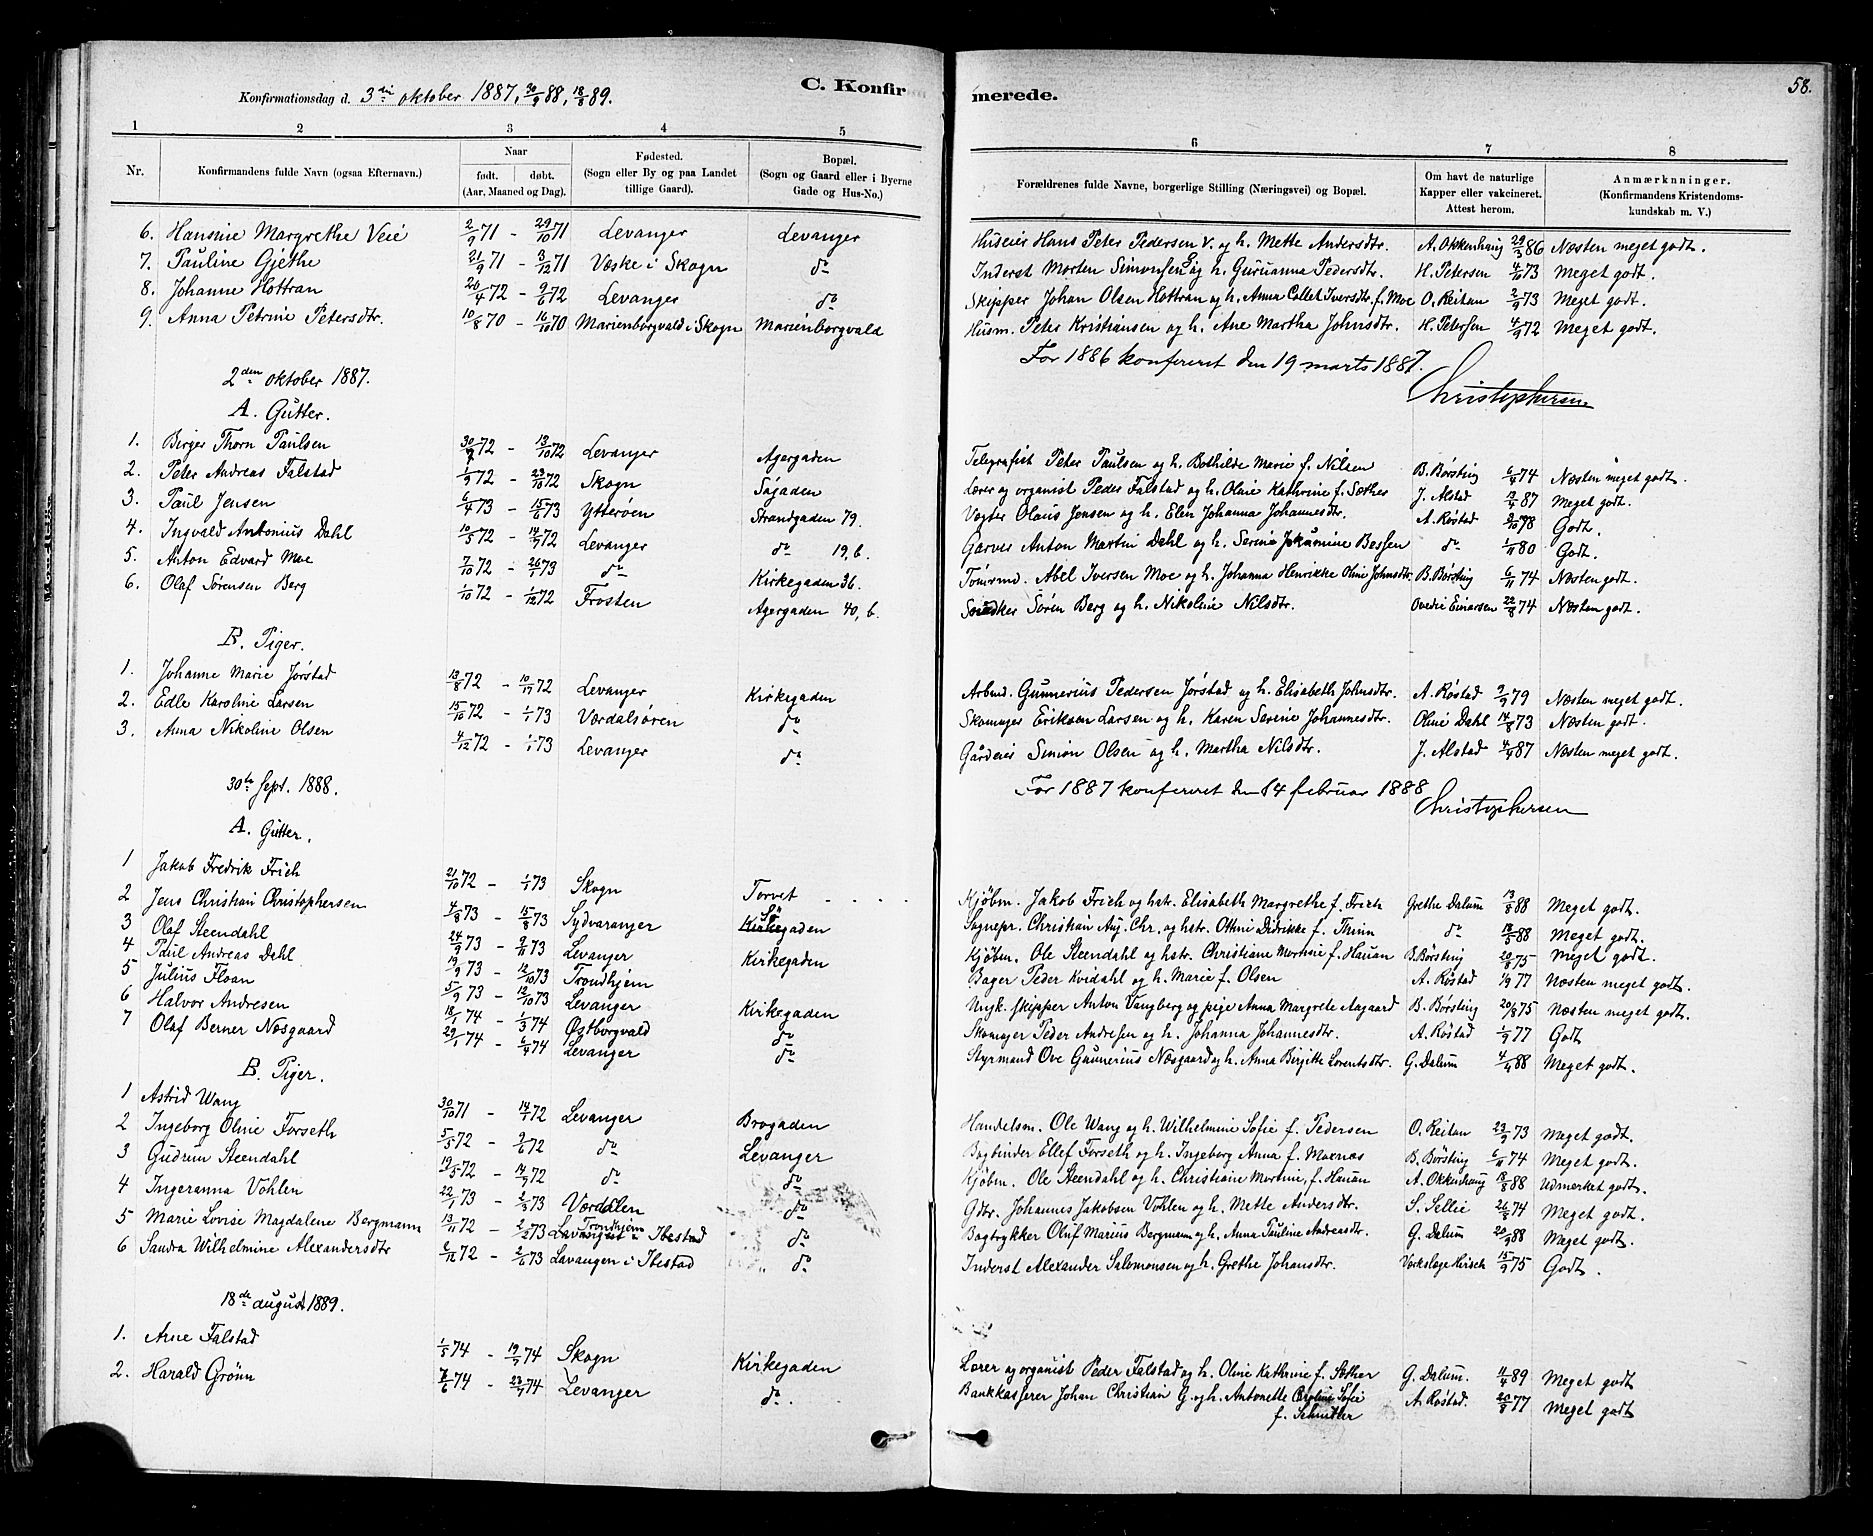 58.
Konfirmationsdag d. 3die oktober 1887, 30/9 88, 18/8 89.
C. Konfirmerede.
1 2 3 4 5 6 7 8
Nr. Konfirmandens fulde Navn (ogsaa Efternavn). Naar født. døbt. (Aar, Maaned og Dag). Fødested. (Sogn eller By og paa Landet tillige Gaard). Bopæl. (Sogn og Gaard eller i Byerne Gade og Hus-No.) Forældrenes fulde Navne, borgerlige Stilling (Næringsvei) og Bopæl. Om havt de naturlige Kapper eller vakcineret. Attest herom. Anmærkninger. (Konfirmandens Kristendomskundskab m. V.)
6. Hansine Margrethe Veie 2/9 71 - 29/10 71 Levanger Levanger Huseier Hans Peter Pedersen V. og h. Mette Andersdtr. A. Okkenhaug 29/3 86 Næsten meget godt.
7. Pauline Gjethe 21/9 71 - 3/12 71 Væske i Skogn do Inderst Morten Simonsen G. og h. Guruanna Pedersdtr. H. Petersen 4/10 73 Meget godt.
8. Johanne Hottran 20/4 72 - 9/6 72 Levanger do Skipper Johan Olsen Hottran og h. Anna Collet Iversdtr. f. Moe O. Reitan 2/9 73 Meget godt.
9. Anna Petrine Petersdtr. 10/8 70 - 16/10 70 Marienborgvald i Skogn Marienborgvald Husm. Peter Kristiansen og h. Ane Martha Johnsdtr. H. Petersen 4/9 72 Meget godt.
For 1886 konfereret den 19 marts 1887.
Christophersen
2den oktober 1887.
A. Gutter.
1. Berger Thorn Paulsen 30/7 72 - 13/10 72 Levanger Agergaden Telegrafist Peter Paulsen og h. Bothilde Marie f. Nilsen B. Børsting 6/4 74 Næsten meget godt.
2. Peter Andreas Falstad 1/9 72 - 23/10 72 Skogn Søgaden Lærer og organist Peder Falstad og h. Oline Kathrine f. Sæther J. Alstad 12/4 87 Meget godt.
3. Paul Jensen 6/4 73 - 15/6 73 Ytterøen Strandgaden 79. Vægter Olaus Jensen og h. Elen Johanna Johannesdtr. A. Røstad 9/10 78 Godt.
4. Ingvald Antonius Dahl 10/5 72 - 14/7 72 Levanger do 19, b. Garver Anton Martin Dahl og h. Serine Jakamine Bessen do 1/11 80 Godt.
5. Anton Edvard Moe 7/10 72 - 26/1 73 do Kirkegaden 36. Tømrmd. Abel Iversen Moe og h. Johanna Henrikke Oline Johnsdtr. B. Børsting 6/11 74 Næsten godt.
6. Olaf Sørensen Berg 1/10 72 - 1/12 72 Frosten Agergaden 40, b. Snedker Søren Berg og h. Nikoline Nilsdtr. Ovedie Einarsen 22/8 74 Næsten godt.
B. Piger.
1. Johanne Marie Jørstad 13/8 72 - 10/11 72 Levanger Kirkegaden Arbmd. Gunnerius Pedersen Jørstad og h. Elisabeth Johnsdtr. A. Røstad 9/9 79 Næsten meget godt.
2. Edle Karoline Larsen 15/10 72 - 1/1 73 Værdalsøren do Skomager Eriksen Larsen og h. Karen Serine Johannesdtr. Oline Dahl 14/8 73 Næsten godt.
3. Anna Nikoline Olsen 4/12 72 - 1/1 73 Levanger do Gårdeier Simon Olsen og h. Martha Nilsdtr. J. Alstad 4/9 87 Næsten meget godt.
For 1887 konfereret den 14 februar 1888
Christophersen
30te sept. 1888.
A. Gutter.
1 Jakob Fredrik Frich 21/10 72 - 1/1 73 Skogn Torvet Kjøbm. Jakob Frich og hstr. Elisabeth Margrethe f. Frich Grethe Dalum 13/8 88 Meget godt.
2 Jens Christian Christophersen 4/8 73 - 15/8 73 Sydvaranger Søgaden Sognepr. Christian Aug. Chr. og hstr. Ottine Didrikke f. Thinn do 18/5 88 Meget godt.
3 Olaf Steendahl 24/9 73 - 9/11 73 Levanger Kirkegaden Kjøbm. Ole Steendahl og hstr. Christiane Mortine f. Hauan B. Børsting 20/8 75 Meget godt.
4 Paul Andreas Dahl 19/9 73 - 12/10 73 Trondhjem Bager Peder Kvidahl og h. Marie f. Olsen A. Røstad 1/9 77 Næsten meget godt.
5 Julius Floan 5/9 73 - 12/10 73 Levanger Kirkegaden Ungk. skipper Anton Vangberg og pige Anna Margrete Aagaard B. Børsting 20/8 75 Næsten meget godt.
6 Halvor Andresen 18/1 74 - 1/3 74 Østborgvald do Skomager Peder Andresen og h. Johanna Johannesdtr. A. Røstad 1/9 77 Godt
7 Olaf Berner Næsgaard 29/1 74 - 6/4 74 Levanger do Styrmand Ove Gunnerius Næsgaard og h. Anna Birgitte Lorentsdtr. G. Dalum 4/4 88 Meget godt.
B. Piger.
1 Astrid Wang 30/10 71 - 14/1 72 Levanger Brogaden Handelsm. Ole Wang og h. Wilhelmine Sofie f. Pedersen O. Reitan 23/9 73 Meget godt.
2 Ingeborg Oline Forseth 5/5 72 - 9/6 72 do Levanger Bogbinder Ellef Forseth og h. Ingeborg Anna f. Marnæs B. Børsting 6/11 74 Meget godt.
3 Gudrun Steendahl 19/5 72 - 14/9 72 do do Kjøbm. Ole Steendahl og h. Christiane Mortine f. Hauan A. Okkenhaug 18/8 88 Udmærket godt.
4 Ingeranna Vohlen 22/1 73 - 2/3 73 Værdalen do Gdbr. Johannes Jakobsen Vohlen og h. Mette Andersdtr. S. Sellie 26/8 74 Meget godt.
5 Marie Lovise Magdalene Bergmann 13/11 72 - 2/2 73 Trondhjem do Bogtrykker Oluf Marius Bergmann og h. Anna Pauline Andreasdtr. G. Dalum 20/9 88 Meget godt.
6 Sandra Wilhelmine Alexandersdtr 2/12 72 - 2/6 73 Lavangen i Ibestad do Inderst Alexander Salomonsen og h. Grethe Johansdtr. 15/9 75 Godt.
18de august 1889.
1. Arne Falstad 1/5 74 - 19/7 74 Skogn Kirkegaden Lærer og organist Peder Falstad og h. Oline Kathrine f. Sæther G. Dalum. 11/4 89 Meget godt
2. Harald Grønn 7/6 74 - 23/7 74 Levanger do. Bankkasserer Johan Christian G. og h. Antonette Caroline Sofie f. Schnitler A. Røstad. 20/8 77 Meget godt